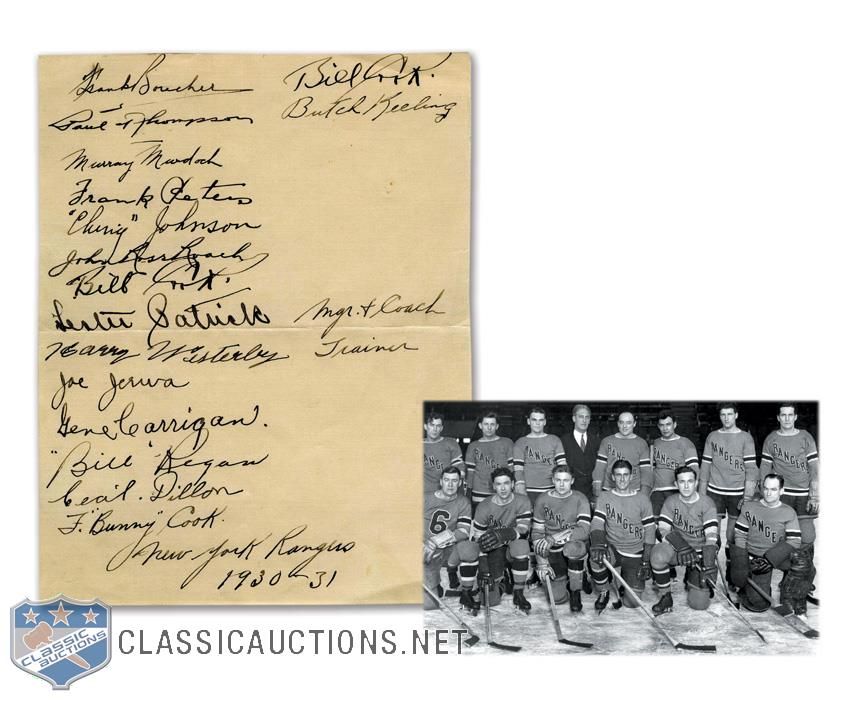 Frank Boucher Bill Cook.
Paul Thompson Butch Keeling
Murray Murdoch
Frank Peters
"Ching" Johnson
John Ross Roach
Bill Cook.
Lester Patrick Mgr. & Coach
Harry Westerby Trainer
Joe Jerwa
Gene Carrigan.
"Bill" Regan
Cecil. Dillon
F. "Bunny" Cook.
New York Rangers
1930-31
RANGERS
RANGERS
RANGERS
RANGERS
RANGERS
RANGERS
RANGERS
6
RANGERS
RANGERS
RANGERS
RANGERS
RANGERS
CLASSIC
AUCTIONS
CLASSICAUCTIONS.NET